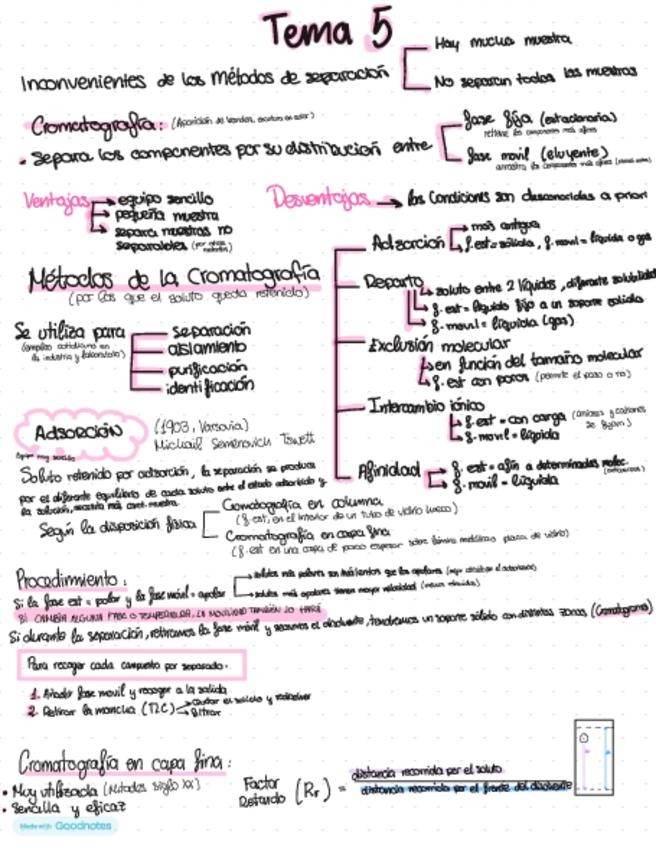 Tema 5
Inconvenientes de los métodos de separación
Hay mucha muestra
No separan todas las muestras
Cromatografía: (Aparición de bandas,
• separa los componentes por su distribución entre
fase fija (estacionaria)
retiene los componentes más afines
fase movil (eluyente)
arrastra los componentes más afines
Ventajas
equipo sencillo
pequeña muestra
separa muestras no
separables (por otros métodos)
Desventajas → las condiciones son desconocidas a priori
Métodos de la Cromatografía
(por los que el soluto queda retenido)
Adsorción
más antigua
f.est = sólida, f.movil = líquida o gas
Reparto
soluto entre 2 líquidos, diferente solubilidad
f.est = líquido fijo a un soporte solido
f.movil = líquida (gas)
Exclusión molecular
en función del tamaño molecular
f.est con poros (permite el paso o no)
Intercambio iónico
f.est = con carga (aniones y cationes
f.movil = líquida
Afinidad
f.est = afín a determinadas molec.
f.movil = líquida
Se utiliza para
(empleo cotidiano en
la industria y laboratorio)
separación
aislamiento
purificación
identificación
Adsorción
(1903, Varsovia)
Michail Semenovich Tswett
Equipo muy sencillo
Soluto retenido por adsorción, la separación se produce
por el diferente equilibrio de cada soluto entre el estado adsorbido y
la solución, necesita más cant. muestra.
Según la disposición física
Cromatografía en columna
(f.est, en el interior de un tubo de vidrio hueco)
Cromatografía en capa fina
(f.est en una capa de poco espesor sobre lámina metálica o placa de vidrio)
Procedimiento:
Si la fase est = polar y la fase móvil = apolar
solutos más polares son más lentos que los apolares
solutos más apolares tienen mayor velocidad
SI CAMBIA ALGUNA FASE O TEMPERATURA, LA MOVILIDAD TAMBIÉN LO HARÁ
Si durante la separación, retiramos la fase móvil y secamos el disolvente, tendremos un soporte sólido con distintas zonas (Cromatograma)
Para recoger cada compuesto por separado.
1. Añadir fase movil y recoger a la salida
2. Retirar la mancha (TLC)
Quitar el sólido y redisolver
filtrar
Cromatografía en capa fina:
• Muy utilizada (Mitades siglo XX)
• Sencilla y eficaz
Factor
Retardo (Rr) =
distancia recorrida por el soluto
distancia recorrida por el frente del disolvente
Made with Goodnotes